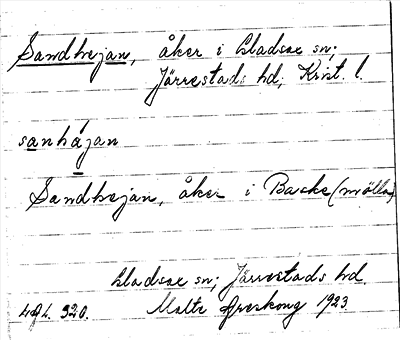 Sandhejan, åker i Gladsax sn;
Järrestads hd; Krist. l.
sanhájan
Sandhejan, åker i Backe(mölla)
Gladsax sn; Järrestads hd.
320. Malte 1923